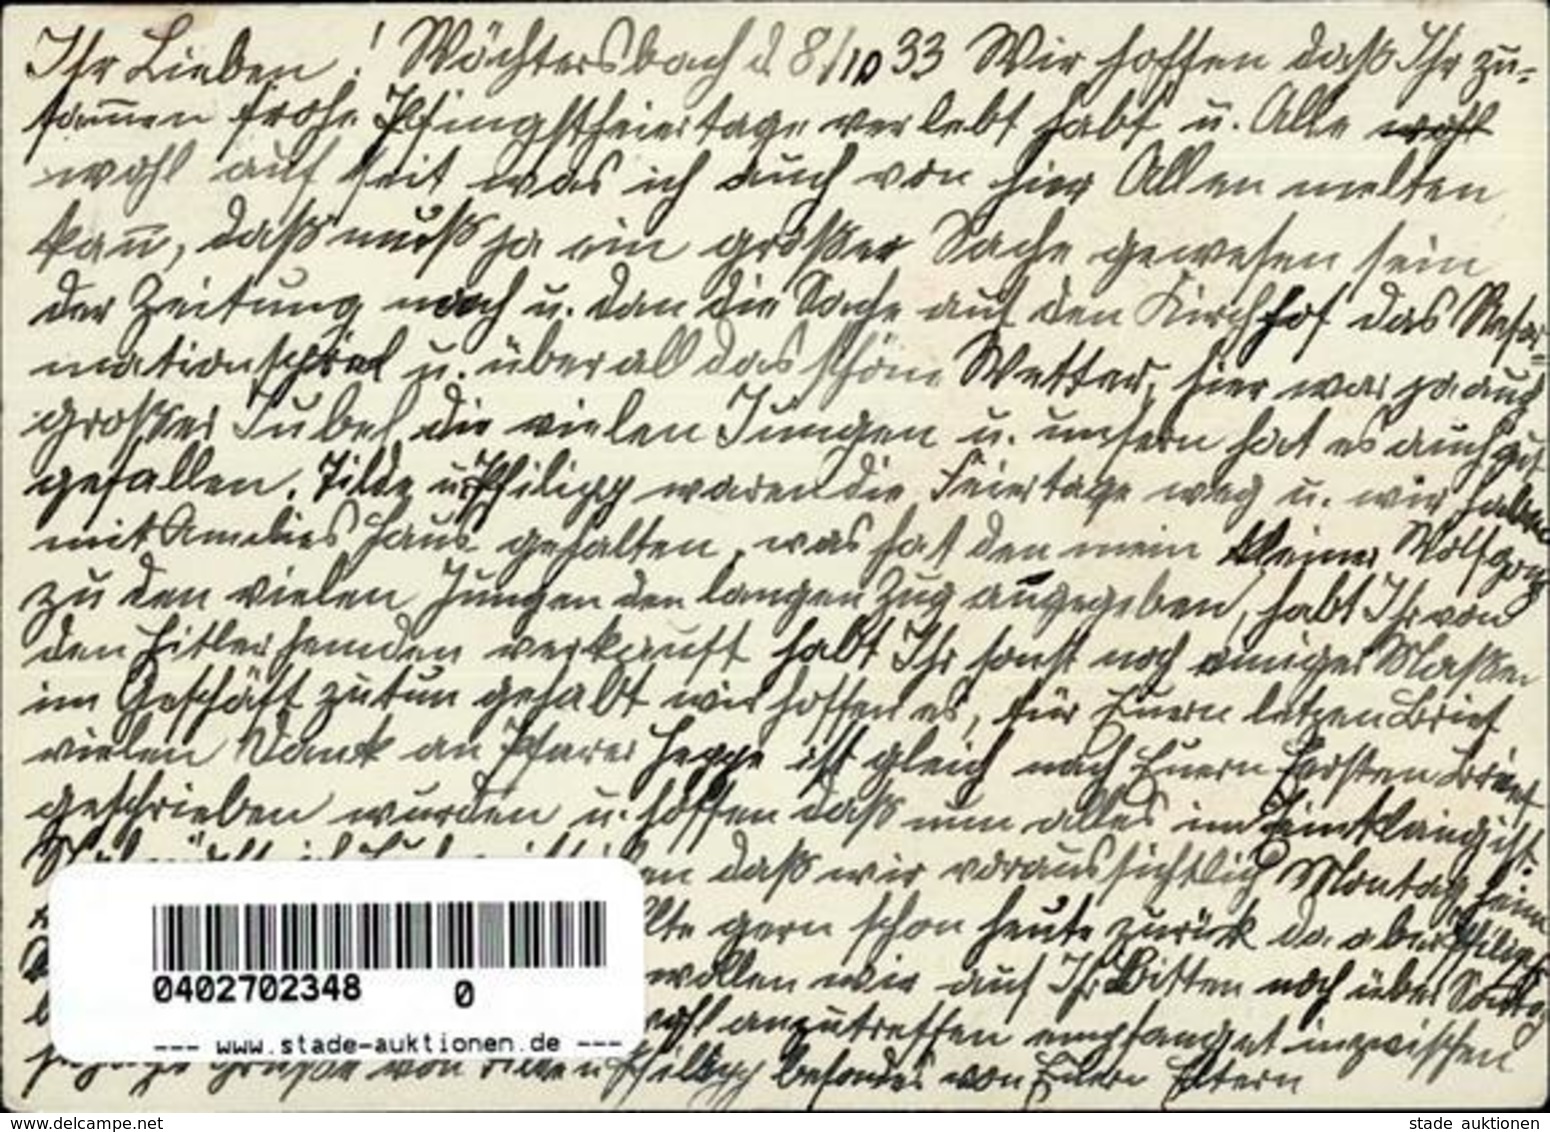 Ihr Lieben! Wächtersbach d. 8/10 33 Wir hoffen daß Ihr zu-
sammen frohe Pfingstfeiertage verlebt habt u. Alle wohl
wohl auf seit was ich auch von hier Allen melten
kann, daß muß ja ein großer Sache gewesen sein
der Zeitung nach u. dan die Sache auf den Kirchhof das Refor-
mationspiel u. überall das schöne Wetter, hier war ja auch
großer Jubel die vielen Jungen u. unsern hat es auch gut
gefallen. Tilde u. Philipp waren die Feiertage weg u. wir haben
mit Amelies Haus gehalten, was hat den mein kleiner Wolfgang
zu den vielen Jungen den langen Zug angegeben, habt Ihr von
den Hitlerhemden verkauft habt Ihr sonst noch einiger Maßen
im Geschäft zutun gehabt wir hoffen es, für Euern letzen Brief
vielen Dank an Pfarer Heppe ist gleich nach Euern Ersten Brief
geschrieben wurden u. hoffen daß nun alles im Einklang ist.
daß wir voraussichtlich Montag heim
gern schon heute zurück da aber Philipp
wollen wir auf Ihr Bitten noch über Sontag
anzutreffen empfanget inzwischen
Grüße von Tilde u. Philipp besonders von Euern Eltern
0402702348 0
--- www.stade-auktionen.de ---
www.delcampe.net
stade auktionen